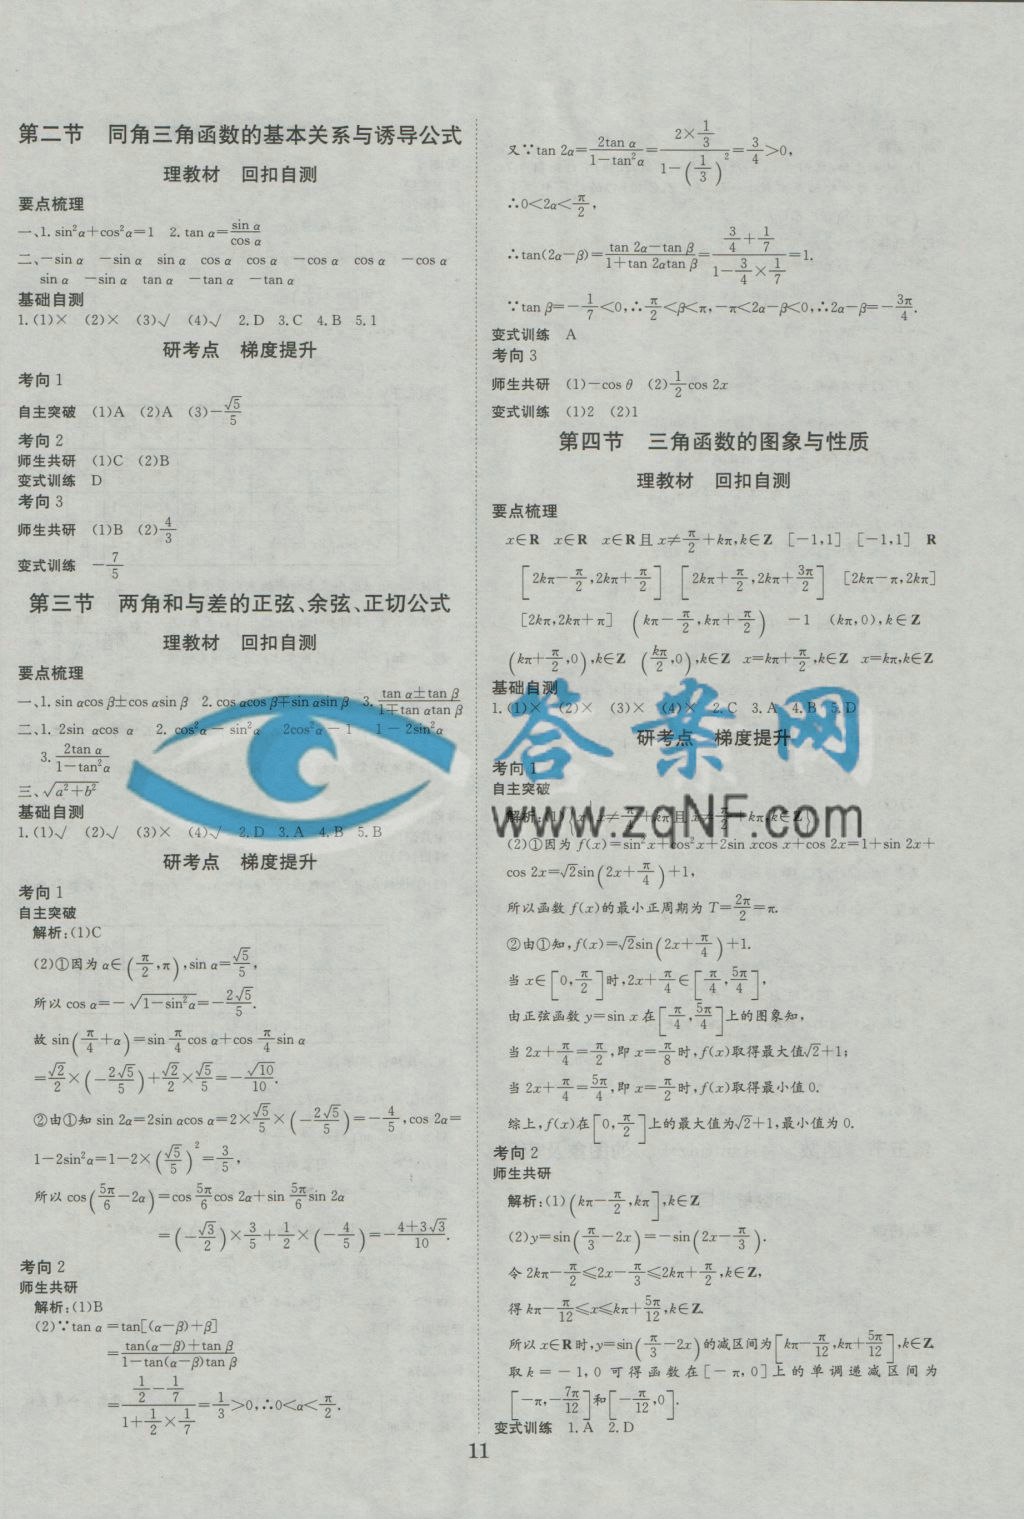 第二节 同角三角函数的基本关系与诱导公式
理教材 回扣自测
要点梳理
一、1. sin²α+cos²α=1 2. tan α=sin α/cos α
二、-sin α -sin α sin α cos α cos α -cos α cos α -cos α
sin α -sin α tan α -tan α -tan α
基础自测
1.(1)× (2)× (3)√ (4)√ 2.D 3.C 4.B 5.1
研考点 梯度提升
考向1
自主突破 (1)A (2)A (3)-√5/5
考向2
师生共研 (1)C (2)B
变式训练 D
考向3
师生共研 (1)B (2)4/3
变式训练 -7/5
第三节 两角和与差的正弦、余弦、正切公式
理教材 回扣自测
要点梳理
一、1. sin αcos β±cos αsin β 2. cos αcos β∓sin αsin β 3. (tan α±tan β)/(1∓tan αtan β)
二、1. 2sin αcos α 2. cos²α-sin²α 2cos²α-1 1-2sin²α
3. 2tan α/(1-tan²α)
三、√(a²+b²)
基础自测
1.(1)√ (2)√ (3)× (4)√ 2.D 3.A 4.B 5.B
研考点 梯度提升
考向1
自主突破
解析:(1)C
(2)①因为 α∈(π/2,π),sin α=√5/5,
所以 cos α=-√(1-sin²α)=-2√5/5.
故 sin(π/4+α)=sin π/4 cos α+cos π/4 sin α
=√2/2×(-2√5/5)+√2/2×√5/5=-√10/10.
②由①知 sin 2α=2sin αcos α=2×√5/5×(-2√5/5)=-4/5,cos 2α=
1-2sin²α=1-2×(√5/5)²=3/5,
所以 cos(5π/6-2α)=cos 5π/6 cos 2α+sin 5π/6 sin 2α
=(-√3/2)×3/5+1/2×(-4/5)=-(4+3√3)/10.
考向2
师生共研
解析:(1)B
(2)∵tan α=tan[(α-β)+β]
=(tan(α-β)+tan β)/(1-tan(α-β)tan β)
=(1/2-1/7)/(1+1/2×1/7)=1/3>0,∴0<α<π/2.
又∵tan 2α=2tan α/(1-tan²α)=(2×1/3)/(1-(1/3)²)=3/4>0,
∴0<2α<π/2,
∴tan(2α-β)=(tan 2α-tan β)/(1+tan 2αtan β)=(3/4+1/7)/(1-3/4×1/7)=1.
∵tan β=-1/7<0,∴π/2<β<π,-π<2α-β<0,∴2α-β=-3π/4.
变式训练 A
考向3
师生共研 (1)-cos θ (2)1/2 cos 2x
变式训练 (1)2 (2)1
第四节 三角函数的图象与性质
理教材 回扣自测
要点梳理
x∈R x∈R x∈R且 x≠π/2+kπ,k∈Z [-1,1] [-1,1] R
[2kπ-π/2,2kπ+π/2] [2kπ+π/2,2kπ+3π/2] [2kπ-π,2kπ]
[2kπ,2kπ+π] (kπ-π/2,kπ+π/2) -1 (kπ,0),k∈Z
(kπ+π/2,0),k∈Z (kπ/2,0),k∈Z x=kπ+π/2,k∈Z x=kπ,k∈Z
基础自测
1.(1)× (2)× (3)× (4)× 2.C 3.A 4.B 5.D
研考点 梯度提升
考向1
自主突破
解析:(1){x|x≠π/4+kπ且 x≠π/2+kπ,k∈Z}
(2)①因为 f(x)=sin²x+cos²x+2sin xcos x+cos 2x=1+sin 2x+
cos 2x=√2sin(2x+π/4)+1,
所以函数 f(x)的最小正周期为 T=2π/2=π.
②由①知,f(x)=√2sin(2x+π/4)+1.
当 x∈[0,π/2]时,2x+π/4∈[π/4,5π/4],
由正弦函数 y=sin x 在[π/4,5π/4]上的图象知,
当 2x+π/4=π/2,即 x=π/8时,f(x)取得最大值√2+1;
当 2x+π/4=5π/4,即 x=π/2时,f(x)取得最小值 0.
综上,f(x)在[0,π/2]上的最大值为√2+1,最小值为 0.
考向2
师生共研
解析:(1)(kπ-π/2,kπ],k∈Z
(2)y=sin(π/3-2x)=-sin(2x-π/3).
令 2kπ-π/2≤2x-π/3≤2kπ+π/2,k∈Z,
得 kπ-π/12≤x≤kπ+5π/12,k∈Z.
所以 x∈R时,y=sin(π/3-2x)的减区间为[kπ-π/12,kπ+5π/12],k∈Z.
取 k=-1,0 可得函数在[-π,0]上的单调递减区间为
[-π,-7π/12]和[-π/12,0].
变式训练 1.A 2.D
11
答案网
www.zqNF.com